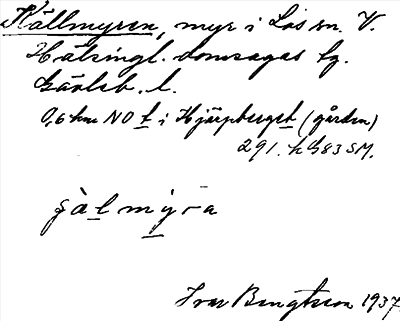 Källmyren, myr i Los sn. V.
Hälsingl. domsagas tg.
Gävleb. l.
0,6 km NO t i Hjärpberget (gården)
291. h G83 SM.
s̀àlmỳra
Ivar Bengtsson 1937